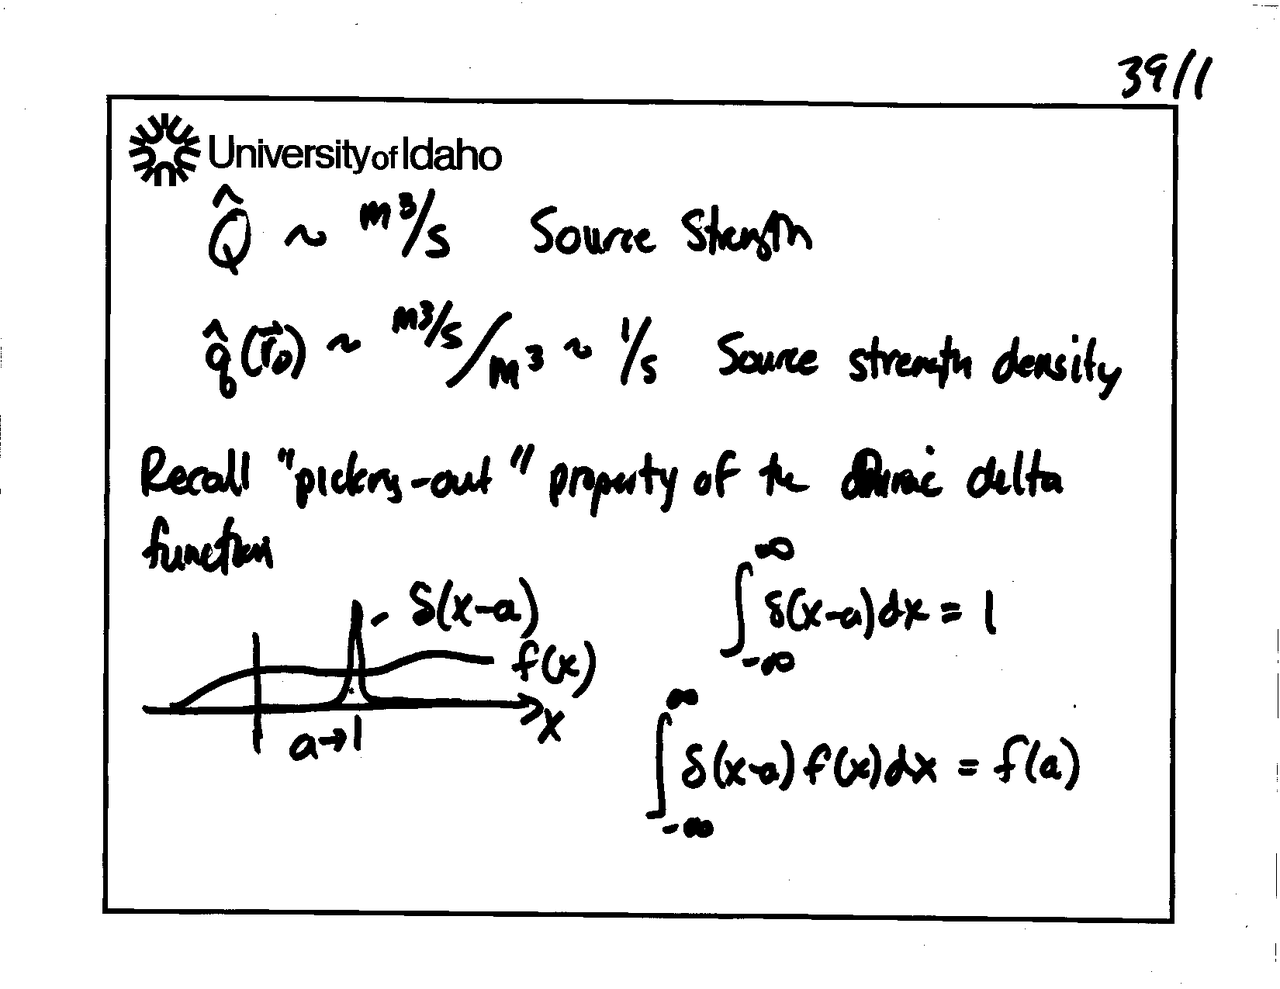 39/1
University of Idaho
Q̂ ~ m³/s Source Strength
q̂(r⃗₀) ~ m³/s/m³ ~ 1/s Source strength density
Recall "picking-out" property of the Dirac delta
function
∫_{-∞}^{∞} δ(x-a)dx = 1
δ(x-a)
f(x)
x
a→|
∫_{-∞}^{∞} δ(x-a) f(x)dx = f(a)